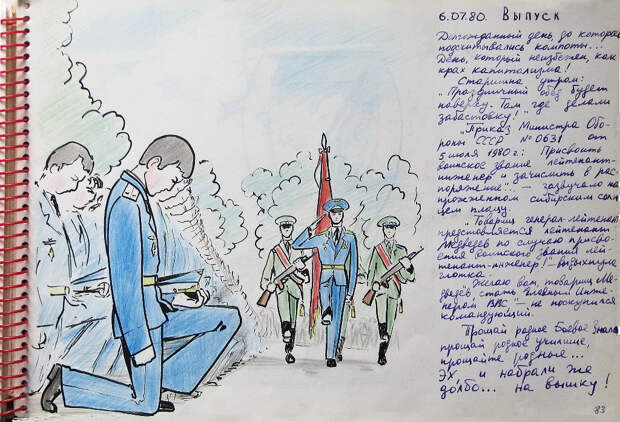 6.07.80. Выпуск
Долгожданный день, до которого
подсчитывались компоты...
День, который неизбежен, как
крах капитализма!
Старшина утрам:
"Праздничный обед будет
наверху. Там где делали
забастовку!"
"Приказ Министра Обо-
роны СССР №0631 от
5 июля 1980г: Присвоить
воинское звание лейтенант-
инженер и зачислить в рас-
поряжение"... – прозвучало на
прожженном сибирским солн-
цем плацу.
"Товарищ генерал-лейтенант
представляется лейтенант
Медведев по случаю присво-
ения воинского звания лей-
тенант-инженер!" – выдыхнула
глотка.
"Желаю вам, товарищ Мед-
ведев стать главным инже-
нером ВВС" – не поскупился
командующий.
Прощай родное Боевое Знамя
прощай родное училище,
прощайте родные...
Эх, и набрали же
долбо... на вышку!
83